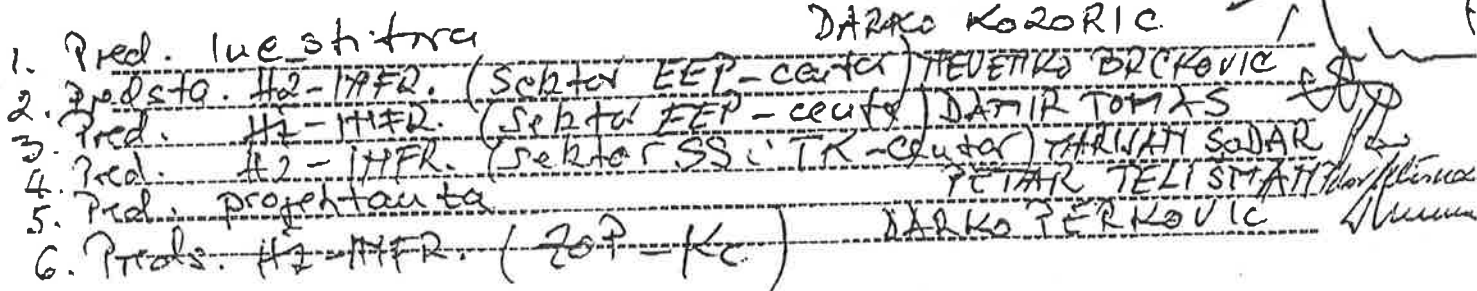 1. Pred. Investitora DARKO KOZORIC
2. Predsta. HŽ-INFR. (Sektor EEP-centar) NEVENKO BRCKOVIC
3. Pred. HŽ-INFR. (Sektor EEP-centar) DAMIR TOMAS
4. Pred. HŽ-INFR. (Sektor SS i TK-centar) MARIJAN SODAR
5. Pred. projektanta PETAR TELISMAN
6. Preds. HŽ-INFR. (ZOP-KC) DARKO PERKOVIC